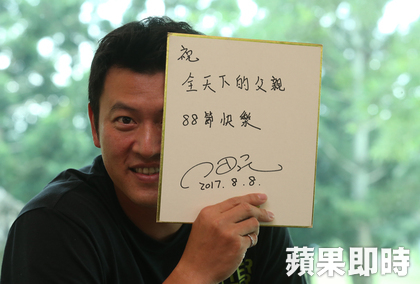 祝
全天下的父親
88節快樂
2017.8.8.
蘋果即時